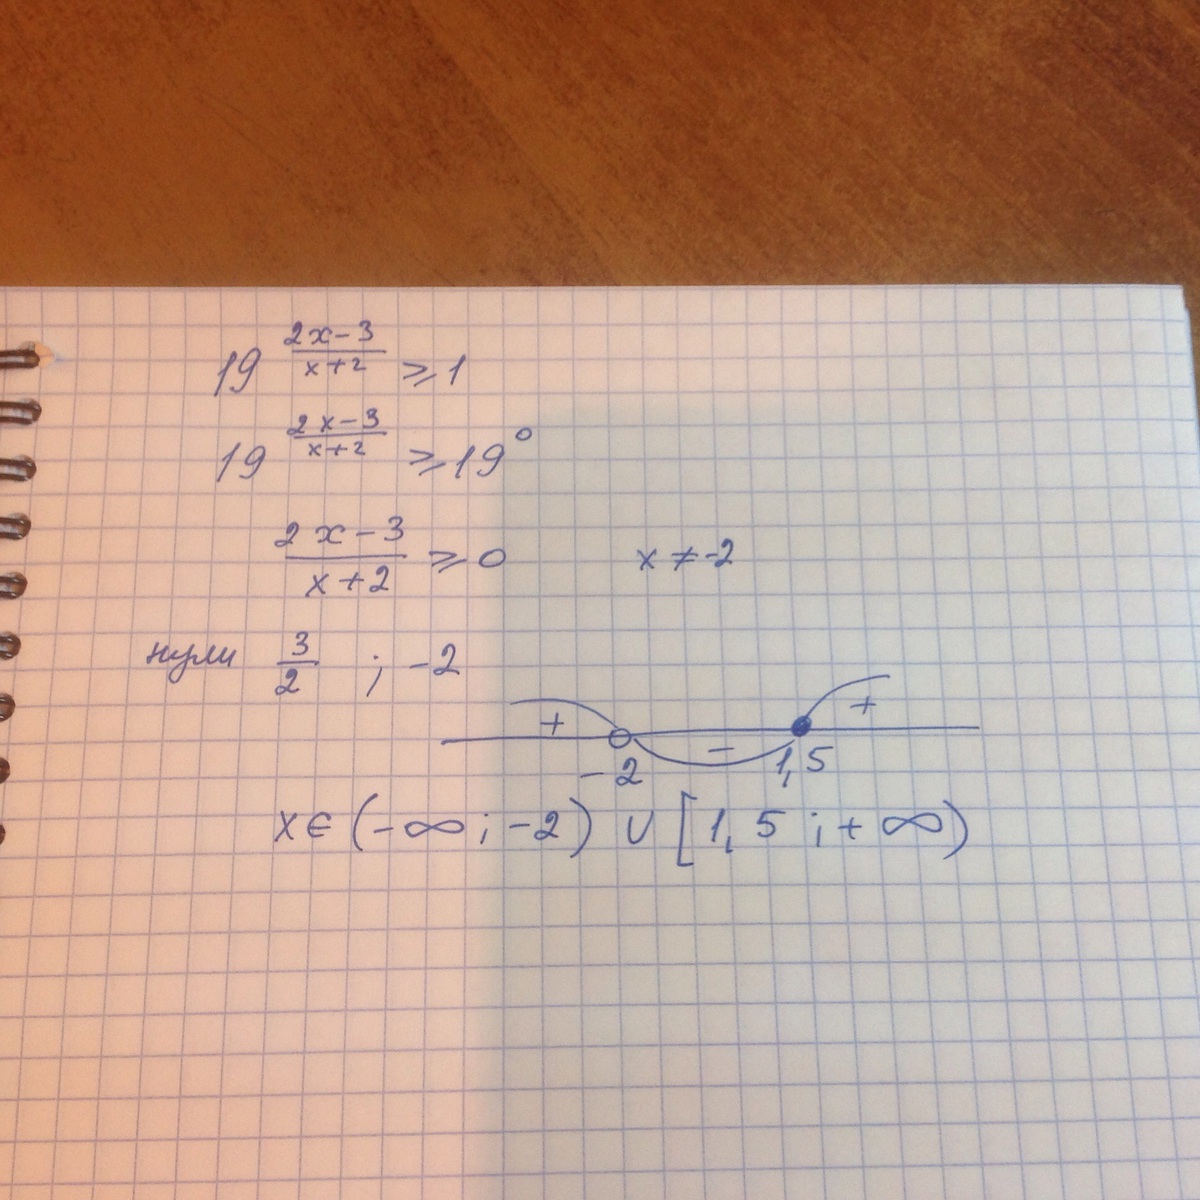 19^((2x-3)/(x+2)) ⩾ 1
19^((2x-3)/(x+2)) ⩾ 19^0
(2x-3)/(x+2) ⩾ 0    x ≠ -2
нули 3/2 ; -2
+ - +
-2 1,5
x ∈ (-∞ ; -2) ∪ [1,5 ; +∞)